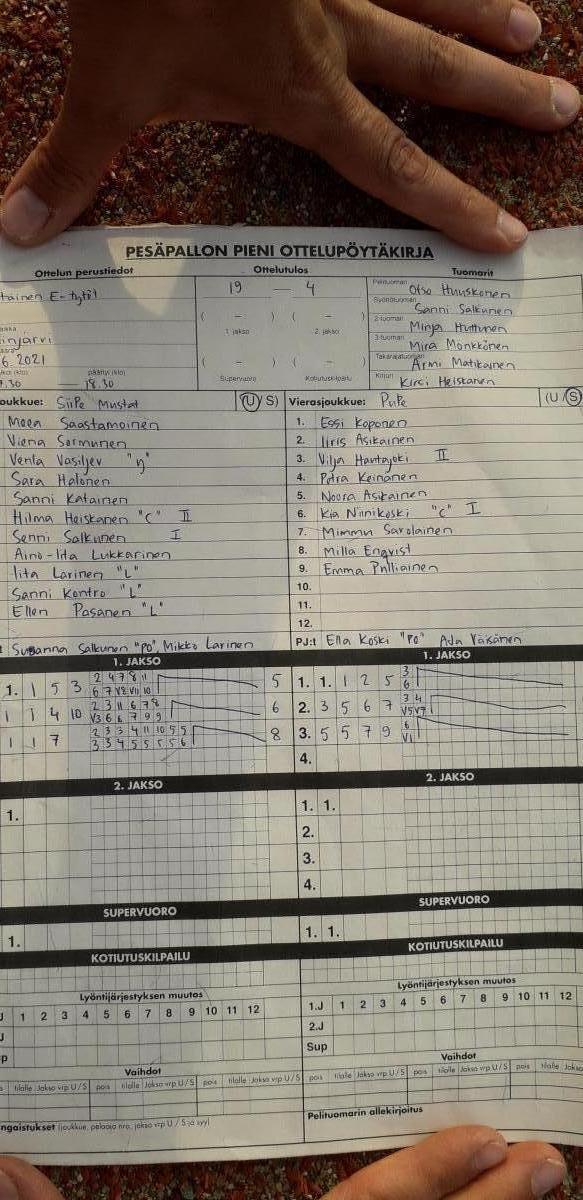 PESÄPALLON PIENI OTTELUPÖYTÄKIRJA
Ottelun perustiedot Ottelutulos Tuomarit
tainen E-tytöt
19 – 4
( – ) ( – )
1. jakso 2. jakso
( – ) ( – )
Supervuoro Kotiutuskilpailu
injärvi
6. 2021
päättyi (klo)
.30 — 18.30
Pelituomari Otso Huuskonen
Syöttötuomari Sanni Salkunen
2-tuomari Minja Huttunen
3-tuomari Mira Monkkönen
Takarajatuomari Armi Matikainen
Kirjuri Kirsi Heiskanen
oukkue: SiiPe Mustat (U/S)
Meea Saastamoinen
Viena Sormunen
Venla Vasiljev
Sara Halonen
Sanni Katainen
Hilma Heiskanen "C" II
Senni Salkunen I
Aino-Iita Lukkarinen
Iita Larinen "L"
Sanni Kontro "L"
Ellen Pasanen "L"
Susanna Salkunen "PO", Mikko Larinen
Vierasjoukkue: PuPe (U/S)
1. Essi Koponen
2. Iiris Asikainen
3. Vilja Hantajoki II
4. Petra Keinänen
5. Noora Asikainen
6. Kia Niinikoski "C" I
7. Mimmu Savolainen
8. Milla Enqvist
9. Emma Pulliainen
10.
11.
12.
PJ:t Ella Koski "PO" Ada Väisänen
1. JAKSO 1. JAKSO
1. 1 5 3 2 4 7 8 11 5
6 7 V8 VII 10
1 4 10 2 3 11 6 7 8 6
V3 6 6 7 9 9
1 1 7 2 3 3 4 11 10 5 5 8
3 3 4 5 5 5 5 6
1. 1. 1 2 5 3
6
2. 3 5 6 7 3 4
V5 V7
3. 5 5 7 9 6
V1
4.
2. JAKSO 2. JAKSO
1.
1. 1.
2.
3.
4.
SUPERVUORO SUPERVUORO
1.
1. 1.
KOTIUTUSKILPAILU KOTIUTUSKILPAILU
Lyöntijärjestyksen muutos Lyöntijärjestyksen muutos
J 1 2 3 4 5 6 7 8 9 10 11 12
J
p
1.J 1 2 3 4 5 6 7 8 9 10 11 12
2.J
Sup
Vaihdot Vaihdot
tilalle Jakso vrp U/S pois tilalle Jakso vrp U/S pois tilalle Jakso vrp U/S
pois tilalle Jakso vrp U/S pois tilalle Jakso vrp U/S pois tilalle Jakso
ngaistukset (joukkue, pelaaja nro, jakso vrp U / S ja syy)
Pelituomarin allekirjoitus